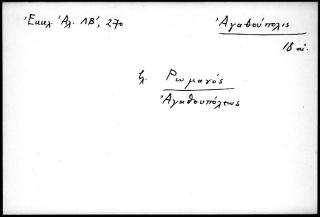 Ἐκκλ. Ἀλ. ΛΒ', 270
Ἀγαθούπολις
18 αἰ.
βλ. Ῥωμανός
Ἀγαθουπόλεως